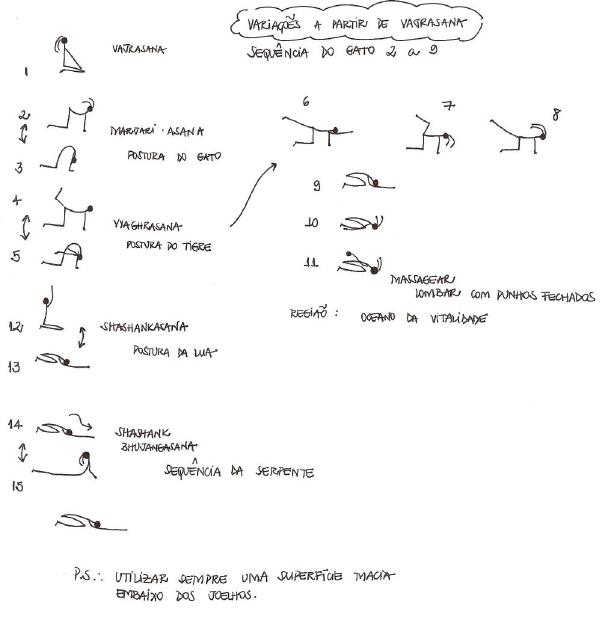 VARIAÇÕES A PARTIR DE VAJRASANA
SEQUÊNCIA DO GATO 2 a 9
1
VAJRASANA
2
MARJARI-ASANA
POSTURA DO GATO
3
4
VYAGHRASANA
POSTURA DO TIGRE
5
6
7
8
9
10
11
MASSAGEAR
LOMBAR COM PUNHOS FECHADOS
REGIÃO: OCEANO DA VITALIDADE
12
SHASHANKASANA
POSTURA DA LUA
13
14
SHASHANK
BHUJANGASANA
SEQUÊNCIA DA SERPENTE
15
P.S.: UTILIZAR SEMPRE UMA SUPERFÍCIE MACIA
EMBAIXO DOS JOELHOS.